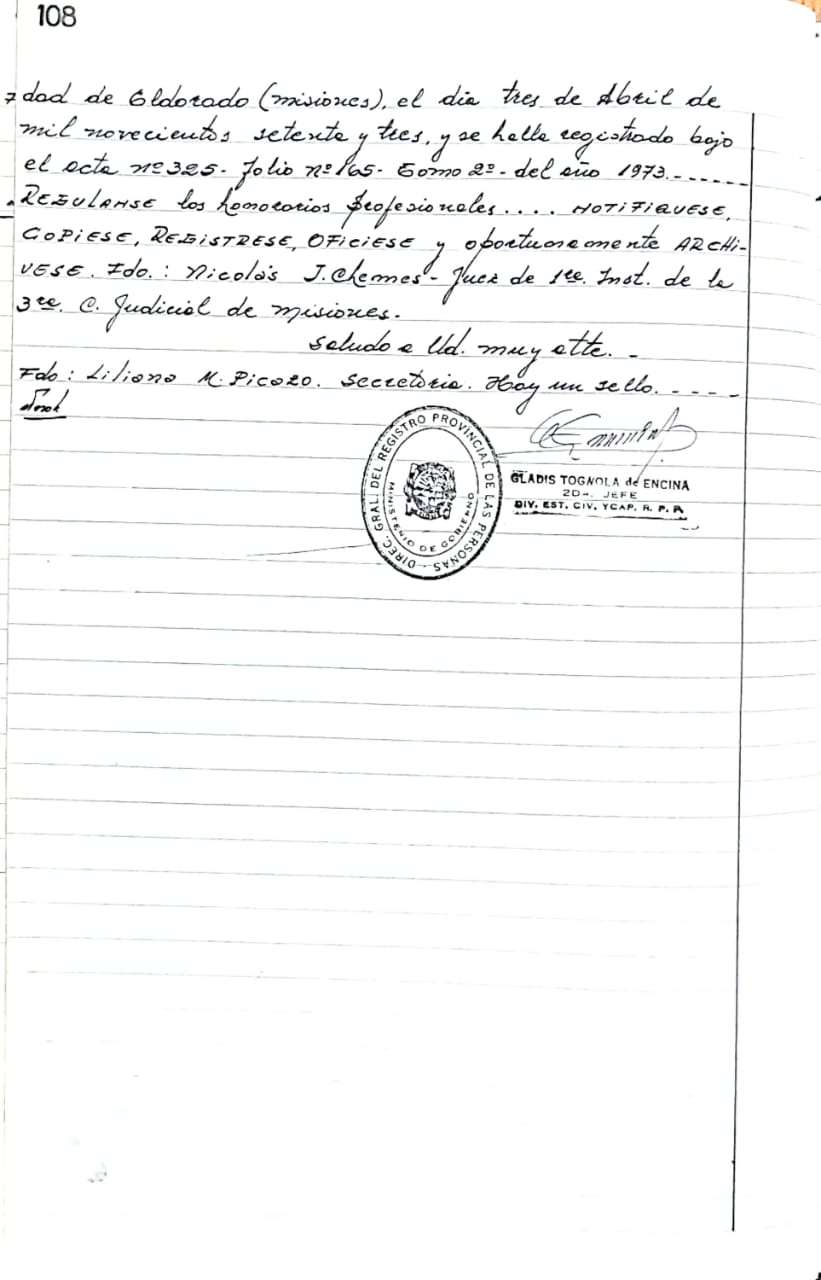 108
dad de Eldorado (Misiones), el día tres de Abril de
mil novecientos setenta y tres, y se halla registrado bajo
el acta nº 325- folio nº 165- Tomo 2º- del año 1973.-.-----
REGULANSE los honorarios profesionales.... NOTIFIQUESE,
COPIESE, REGISTRESE, OFICIESE y oportunamente ARCHI-
VESE. Fdo.: Nicolás J. Chemes- Juez de 1ra. Inst. de la
3ra. C. Judicial de Misiones.
Saludo a Ud. muy atte. -
Fdo: Liliana M. Picazo. Secretaria. Hay un sello. - - - -
DIREC. GRAL. DEL REGISTRO PROVINCIAL DE LAS PERSONAS -
MINISTERIO DE GOBIERNO
GLADIS TOGNOLA de ENCINA
2DA. JEFE
DIV. EST. CIV. YCAP. R. P. P.